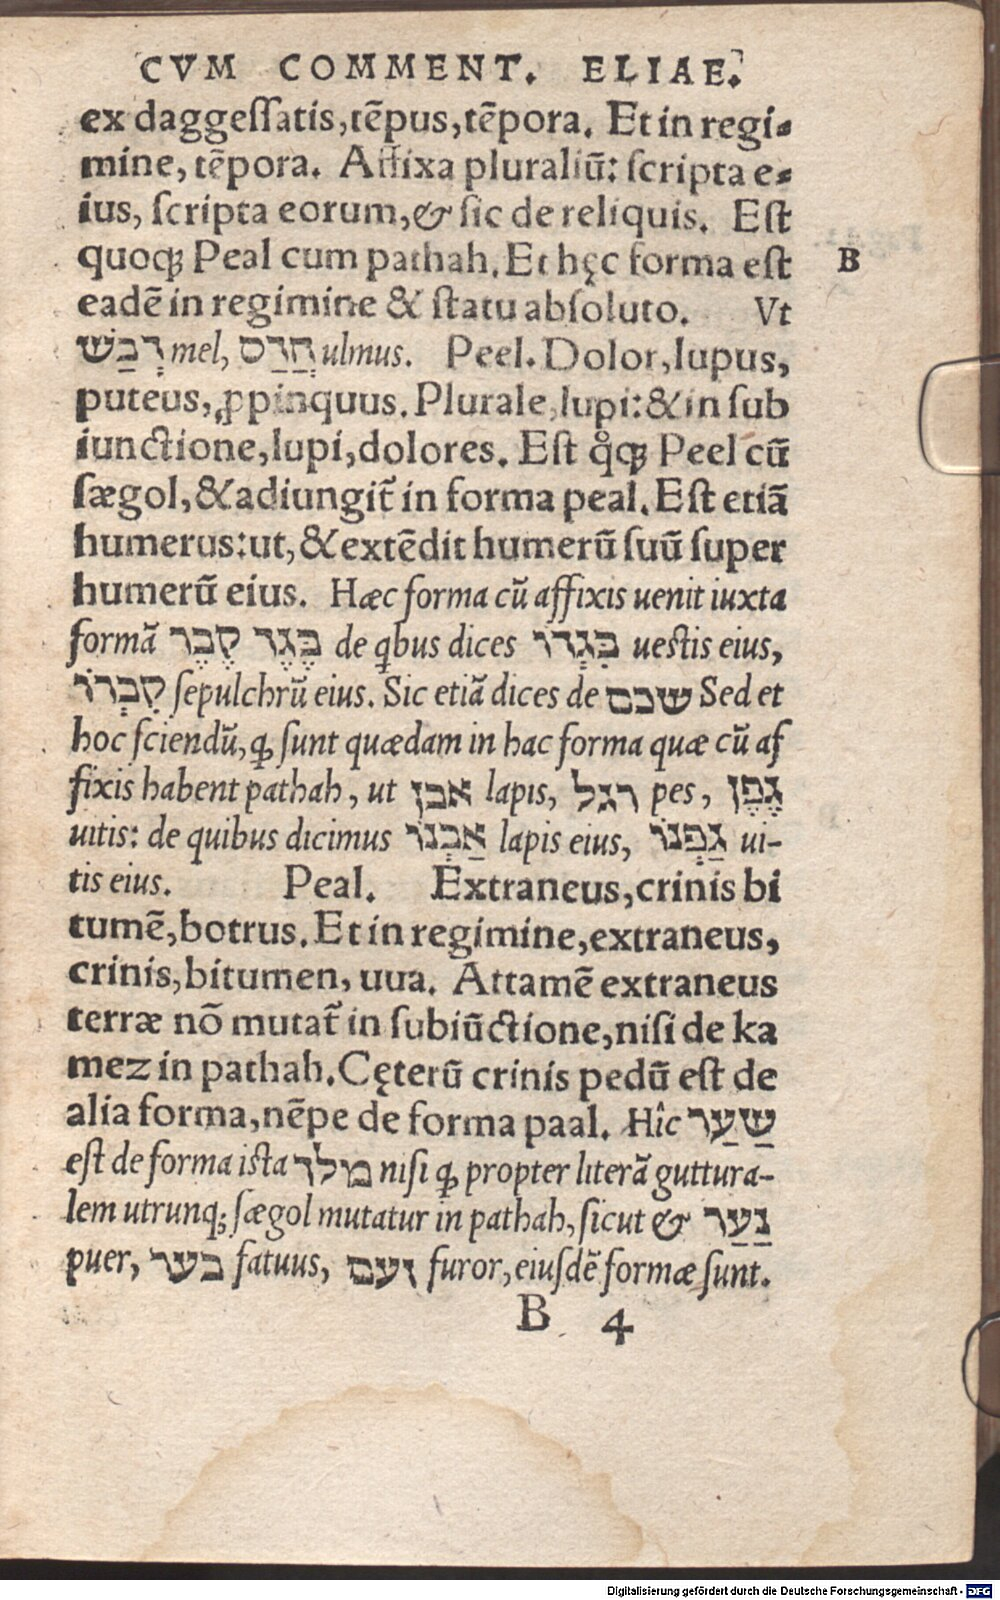 CVM COMMENT. ELIAE.
ex daggeſſatis, tẽpus, tẽpora. Et in regi-
mine, tẽpora. Affixa pluraliũ: ſcripta e-
ius, ſcripta eorum, & ſic de reliquis. Eſt
quoqꝫ Peal cum pathah. Et hęc forma eſt B
eadẽ in regimine & ſtatu abſoluto. Vt
דְבַשׁ mel, חֲדַס ulmus. Peel. Dolor, lupus,
puteus, ꝓpinquus. Plurale, lupi: & in ſub
iunctione, lupi, dolores. Eſt qͦqꝫ Peel cũ
ſægol, & adiungit᷑ in forma peal. Eſt etiã
humerus: ut, & extẽdit humerũ ſuũ ſuper
humerũ eius. Hæc forma cũ affixis uenit iuxta
formã בֶּגֶד קֶבֶר de qbus dices בִּגְדוֹ ueſtis eius,
קִבְרוֹ ſepulchrũ eius. Sic etiã dices de שכם Sed et
hoc ſciendũ, ꝙ ſunt quædam in hac forma quæ cũ af
fixis habent pathah, ut אבן lapis, רגל pes, גֶפֶן
uitis: de quibus dicimus אַבְנוֹ lapis eius, גַפְנוֹ ui-
tis eius. Peal. Extraneus, crinis bi
tumẽ, botrus. Et in regimine, extraneus,
crinis, bitumen, uua. Attamẽ extraneus
terræ nõ mutat᷑ in ſubiũctione, niſi de ka
mez in pathah. Cęterũ crinis pedũ eſt de
alia forma, nẽpe de forma paal. Hîc שַׂעַר
eſt de forma iſta מלך niſi ꝙ propter literã guttura-
lem utrunqꝫ ſægol mutatur in pathah, ſicut & נַעַר
puer, בער fatuus, זעם furor, eiuſdẽ formæ ſunt.
B 4
Digitalisierung gefördert durch die Deutsche Forschungsgemeinschaft - DFG